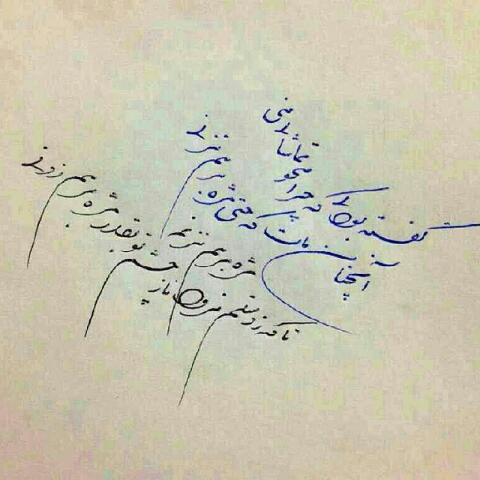 گفته بودی که چرا محو تماشای منی
آنچنان مات که حتی مژه بر هم نزنی
مژه بر هم نزنم
تا که ز دستم نرود ناز چشم تو بقدر مژه بر هم زدنی